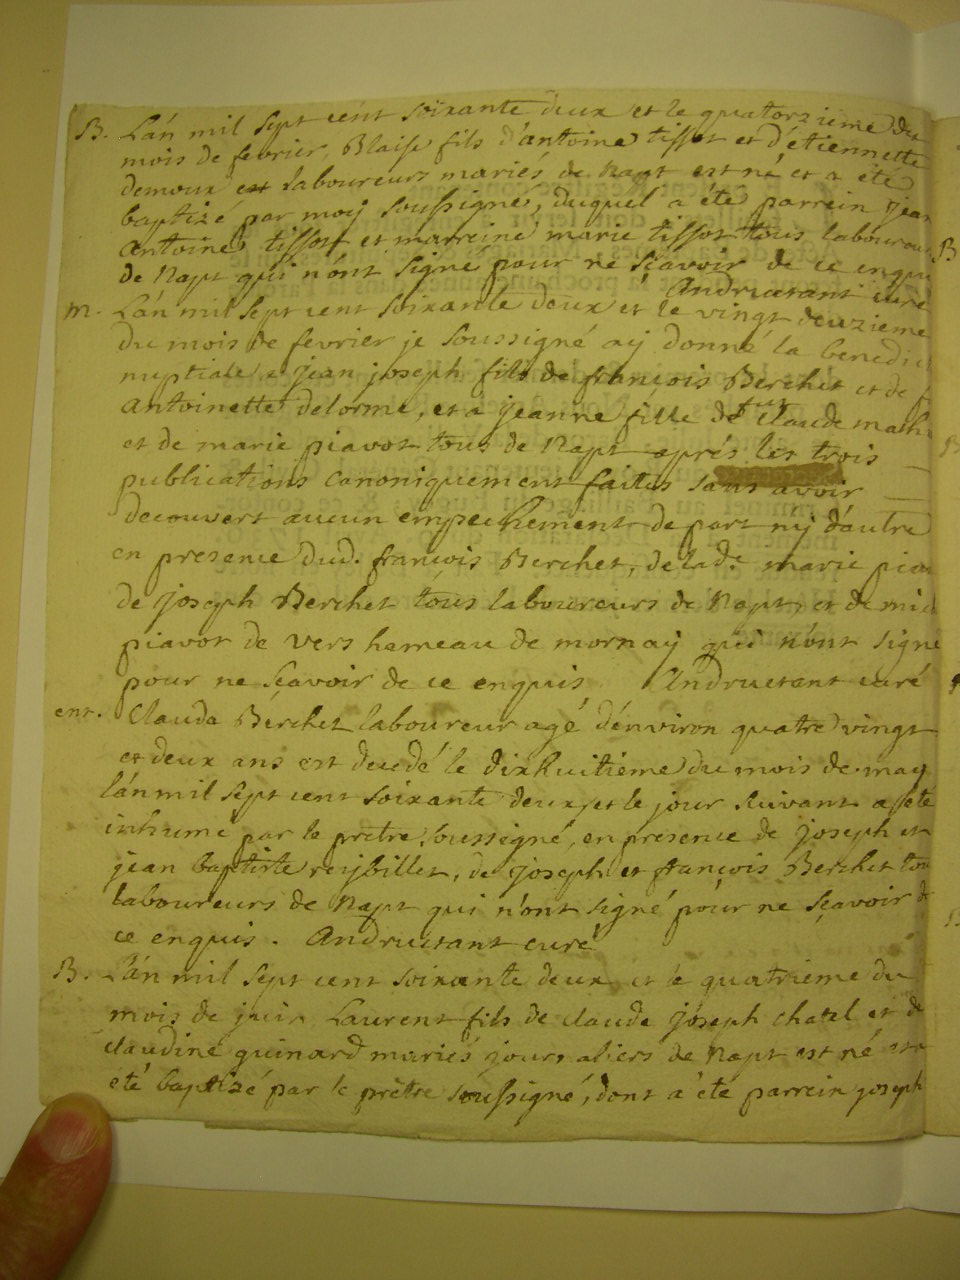 B. L'an mil sept cent soixante deux et le quatorzieme du
mois de fevrier, Blaise fils d'antoine tissot et d'étiennette
demoux et laboureurs mariés de Napt est né et a été
baptizé par moy soussigné, duquel a été parrein jean
antoine tissot et marreine marie tissot tous laboureurs
de Napt qui n'ont signé pour ne sçavoir de ce enquis
Andructant curé
m. L'an mil sept cent soixante deux et le vingt deuzieme
du mois de fevrier je soussigné ay donné la benedict
nuptiale a jean joseph fils de françois Berchet et de
antoinette delorme, et a jeanne fille de fut Claude math
et de marie piavot tous de Napt aprés les trois
publications canoniquement faites sans avoir
decouvert aucun empechement de part n'y d'autre
en presence dud. françois Berchet, de lad.e marie piav
de joseph Berchet tous laboureurs de Napt, et de mic
piavot de vers hameau de mornay qui n'ont signé
pour ne sçavoir de ce enquis Andructant curé
ent. Clauda Berchet laboureur agé d'environ quatre vingt
et deux ans est decedé le dixhuitieme du mois de may
l'an mil sept cent soixante deux, et le jour suivant a été
inhumé par le prêtre soussigné, en presence de joseph et
jean baptiste reybillet, de joseph et françois Berchet tou
laboureurs de Napt qui n'ont signé pour ne sçavoir de
ce enquis. Andructant curé
B. L'an mil sept cent soixante deux et le quatrieme du
mois de juin Laurent fils de claude joseph chatel et de
claudine guinard mariés journaliers de Napt est né et a
été baptizé par le prêtre soussigné, dont a été parrein joseph